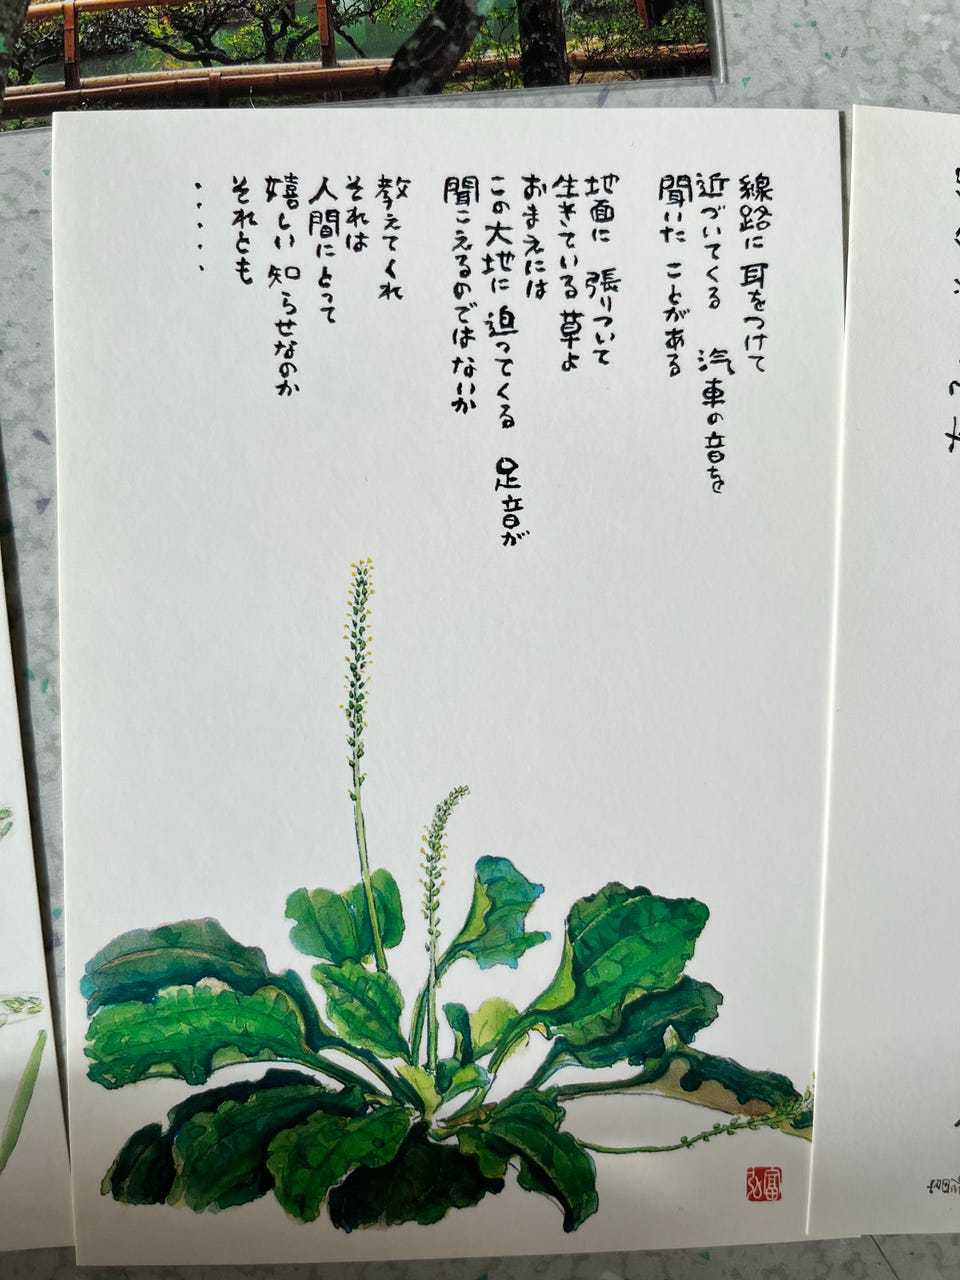 線路に 耳をつけて
近づいてくる 汽車の音を
聞いた ことがある
地面に 張りついて
生きている 草よ
おまえには
この大地に 迫ってくる 足音が
聞こえるのではないか
教えてくれ
それは
人間にとって
嬉しい 知らせなのか
それとも
・・・・
富弘